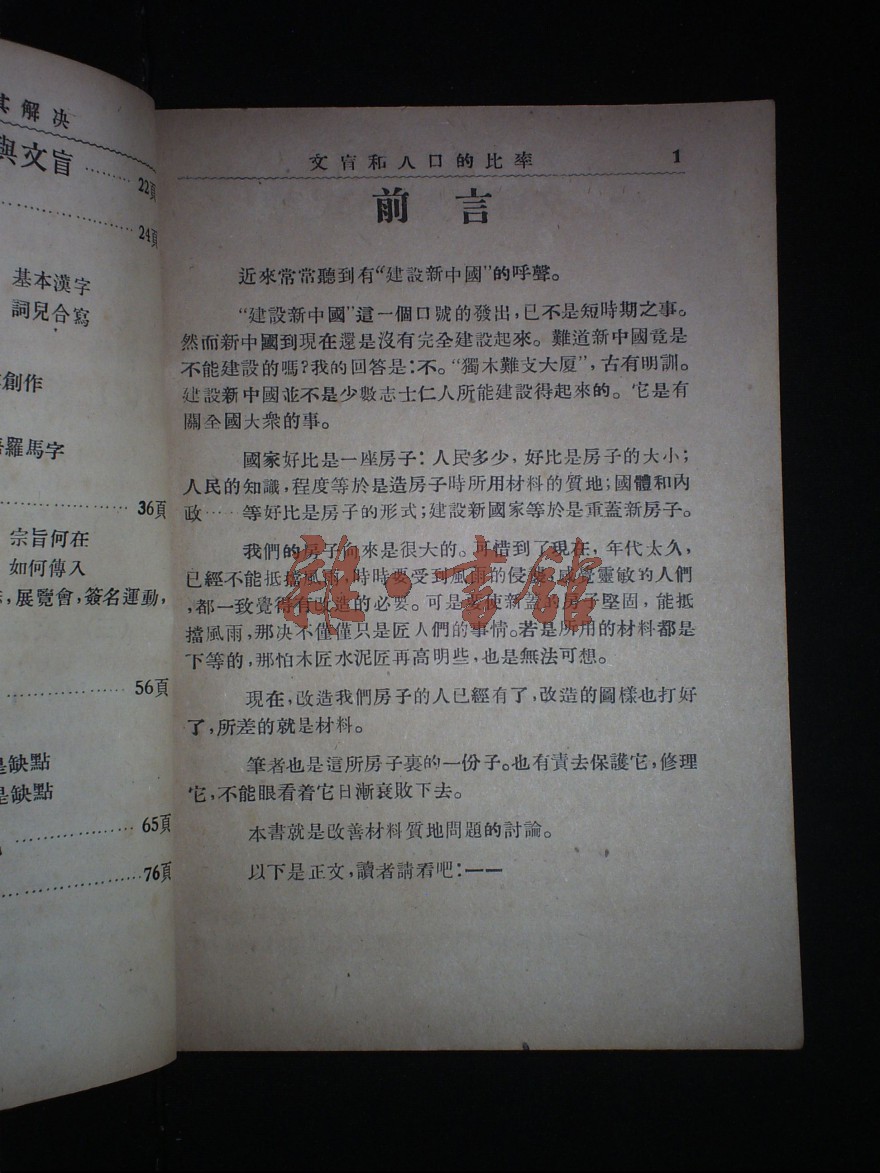 其解决
與文盲········22頁
············24頁
基本漢字
詞兒合寫
創作
羅馬字
············36頁
宗旨何在
如何傳入
,展覽會,簽名運動,
············56頁
是缺點
是缺點
············65頁
············76頁
文盲和人口的比率 1
前言
近來常常聽到有“建設新中國”的呼聲。
“建設新中國”這一個口號的發出,已不是短時期之事。
然而新中國到現在還是沒有完全建設起來。難道新中國竟是
不能建設的嗎?我的回答是:不。“獨木難支大厦”,古有明訓。
建設新中國並不是少數志士仁人所能建設得起來的。它是有
關全國大衆的事。
國家好比是一座房子:人民多少,好比是房子的大小;
人民的知識,程度等於是造房子時所用材料的質地;國體和內
政……等好比是房子的形式;建設新國家等於是重蓋新房子。
我們的房子向來是很大的。可惜到了現在,年代太久,
已經不能抵擋風雨,時時要受到風雨的侵襲;感覺靈敏的人們
,都一致覺得有改造的必要。可是要使新蓋的房子堅固,能抵
擋風雨,那决不僅僅只是匠人們的事情。若是所用的材料都是
下等的,那怕木匠水泥匠再高明些,也是無法可想。
現在,改造我們房子的人已經有了,改造的圖樣也打好
了,所差的就是材料。
筆者也是這所房子裏的一份子。也有責去保護它,修理
它,不能眼看着它日漸衰敗下去。
本書就是改善材料質地問題的討論。
以下是正文,讀者請看吧:——
雜·書館